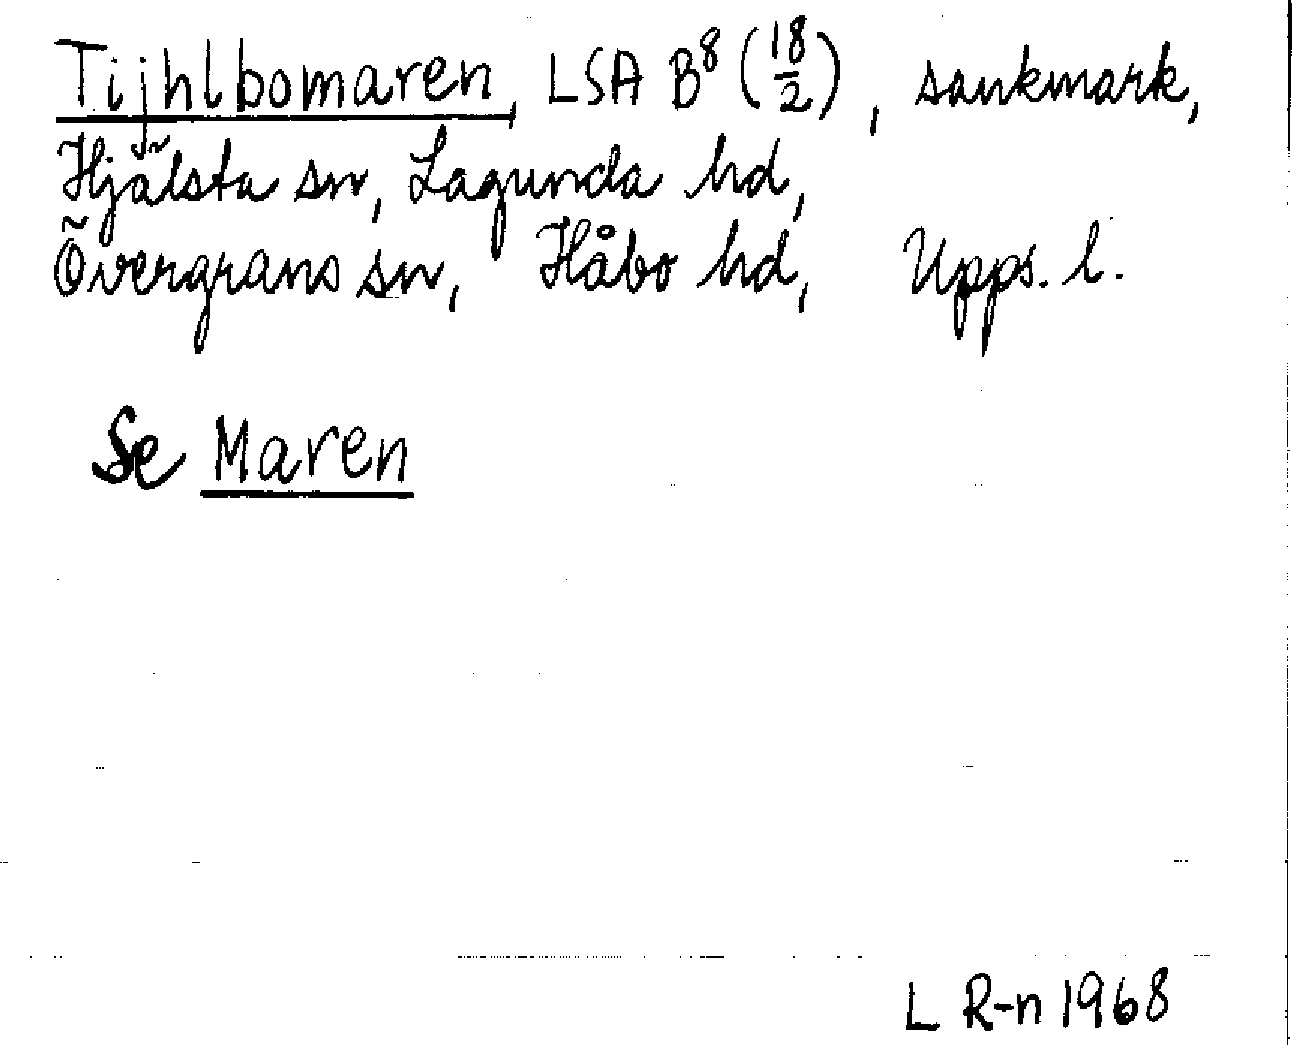 Tijhlbomaren, LSA B⁸ (18/2), sankmark,
Hjälsta sn, Lagunda hd,
Övergrans sn, Håbo hd, Upps. l.
Se Maren
L R-n 1968